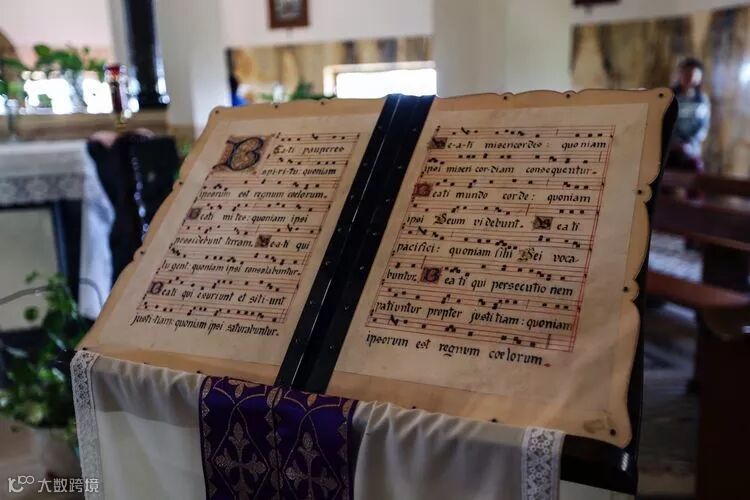 Beati pauperes
spi-ri-tu: quoniam
ipsorum est regnum coelorum.
Beati mi tes: quoniam ipsi
possidebunt terram. Beati qui
lu gent: quoniam ipsi consolabuntur.
Beati qui esuriunt et siti-unt
justitiam: quoniam ipsi saturabuntur.
Be-a-ti misericordes: quo niam
ipsi miseri cor-diam consequentur.
Beati mundo corde: quoniam
ipsi Deum videbunt. Beati
pacifici: quoniam filii Dei voca
buntur. Beati qui persecutio nem
patiuntur propter justi tiam: quoniam
ipsorum est regnum coelorum.
大数跨境